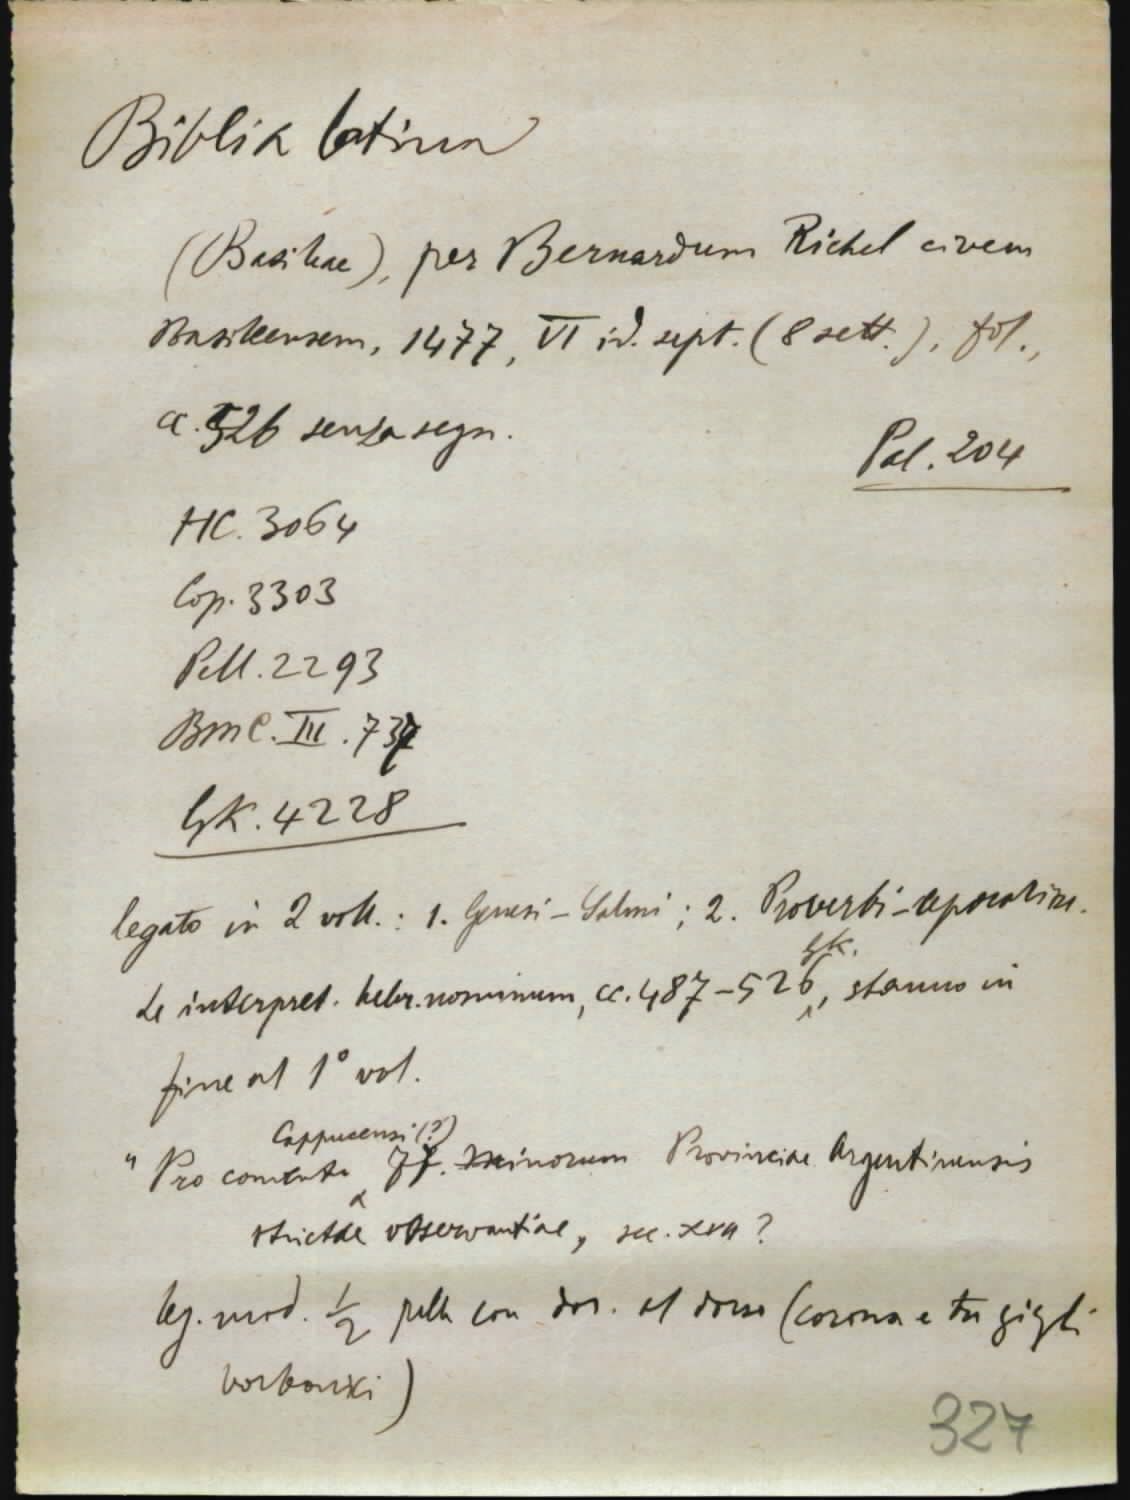 Biblia latina
(Basileae), per Bernardum Richel civem
Basileensem, 1477, VI id. sept. (8 sett.), fol.,
cc. 526 senza segn.
Pal. 204
HC. 3064
Cop. 3303
Pell. 2293
BMC. III. 737
GK. 4228
legato in 2 voll.: 1. Genesi - Salmi; 2. Proverbi - Apocalisse.
Le interpret. hebr. nominum, cc. 487-526, stanno in
GK.
fine al 1° vol.
Cappucensi (?)
"Pro conventu FF. Minorum Provinciae Argentinensis
strictae observantiae", sec. XVII?
leg. mod. 1/2 pelle con dor. al dorso (corona e tre gigli
borbonici)
327